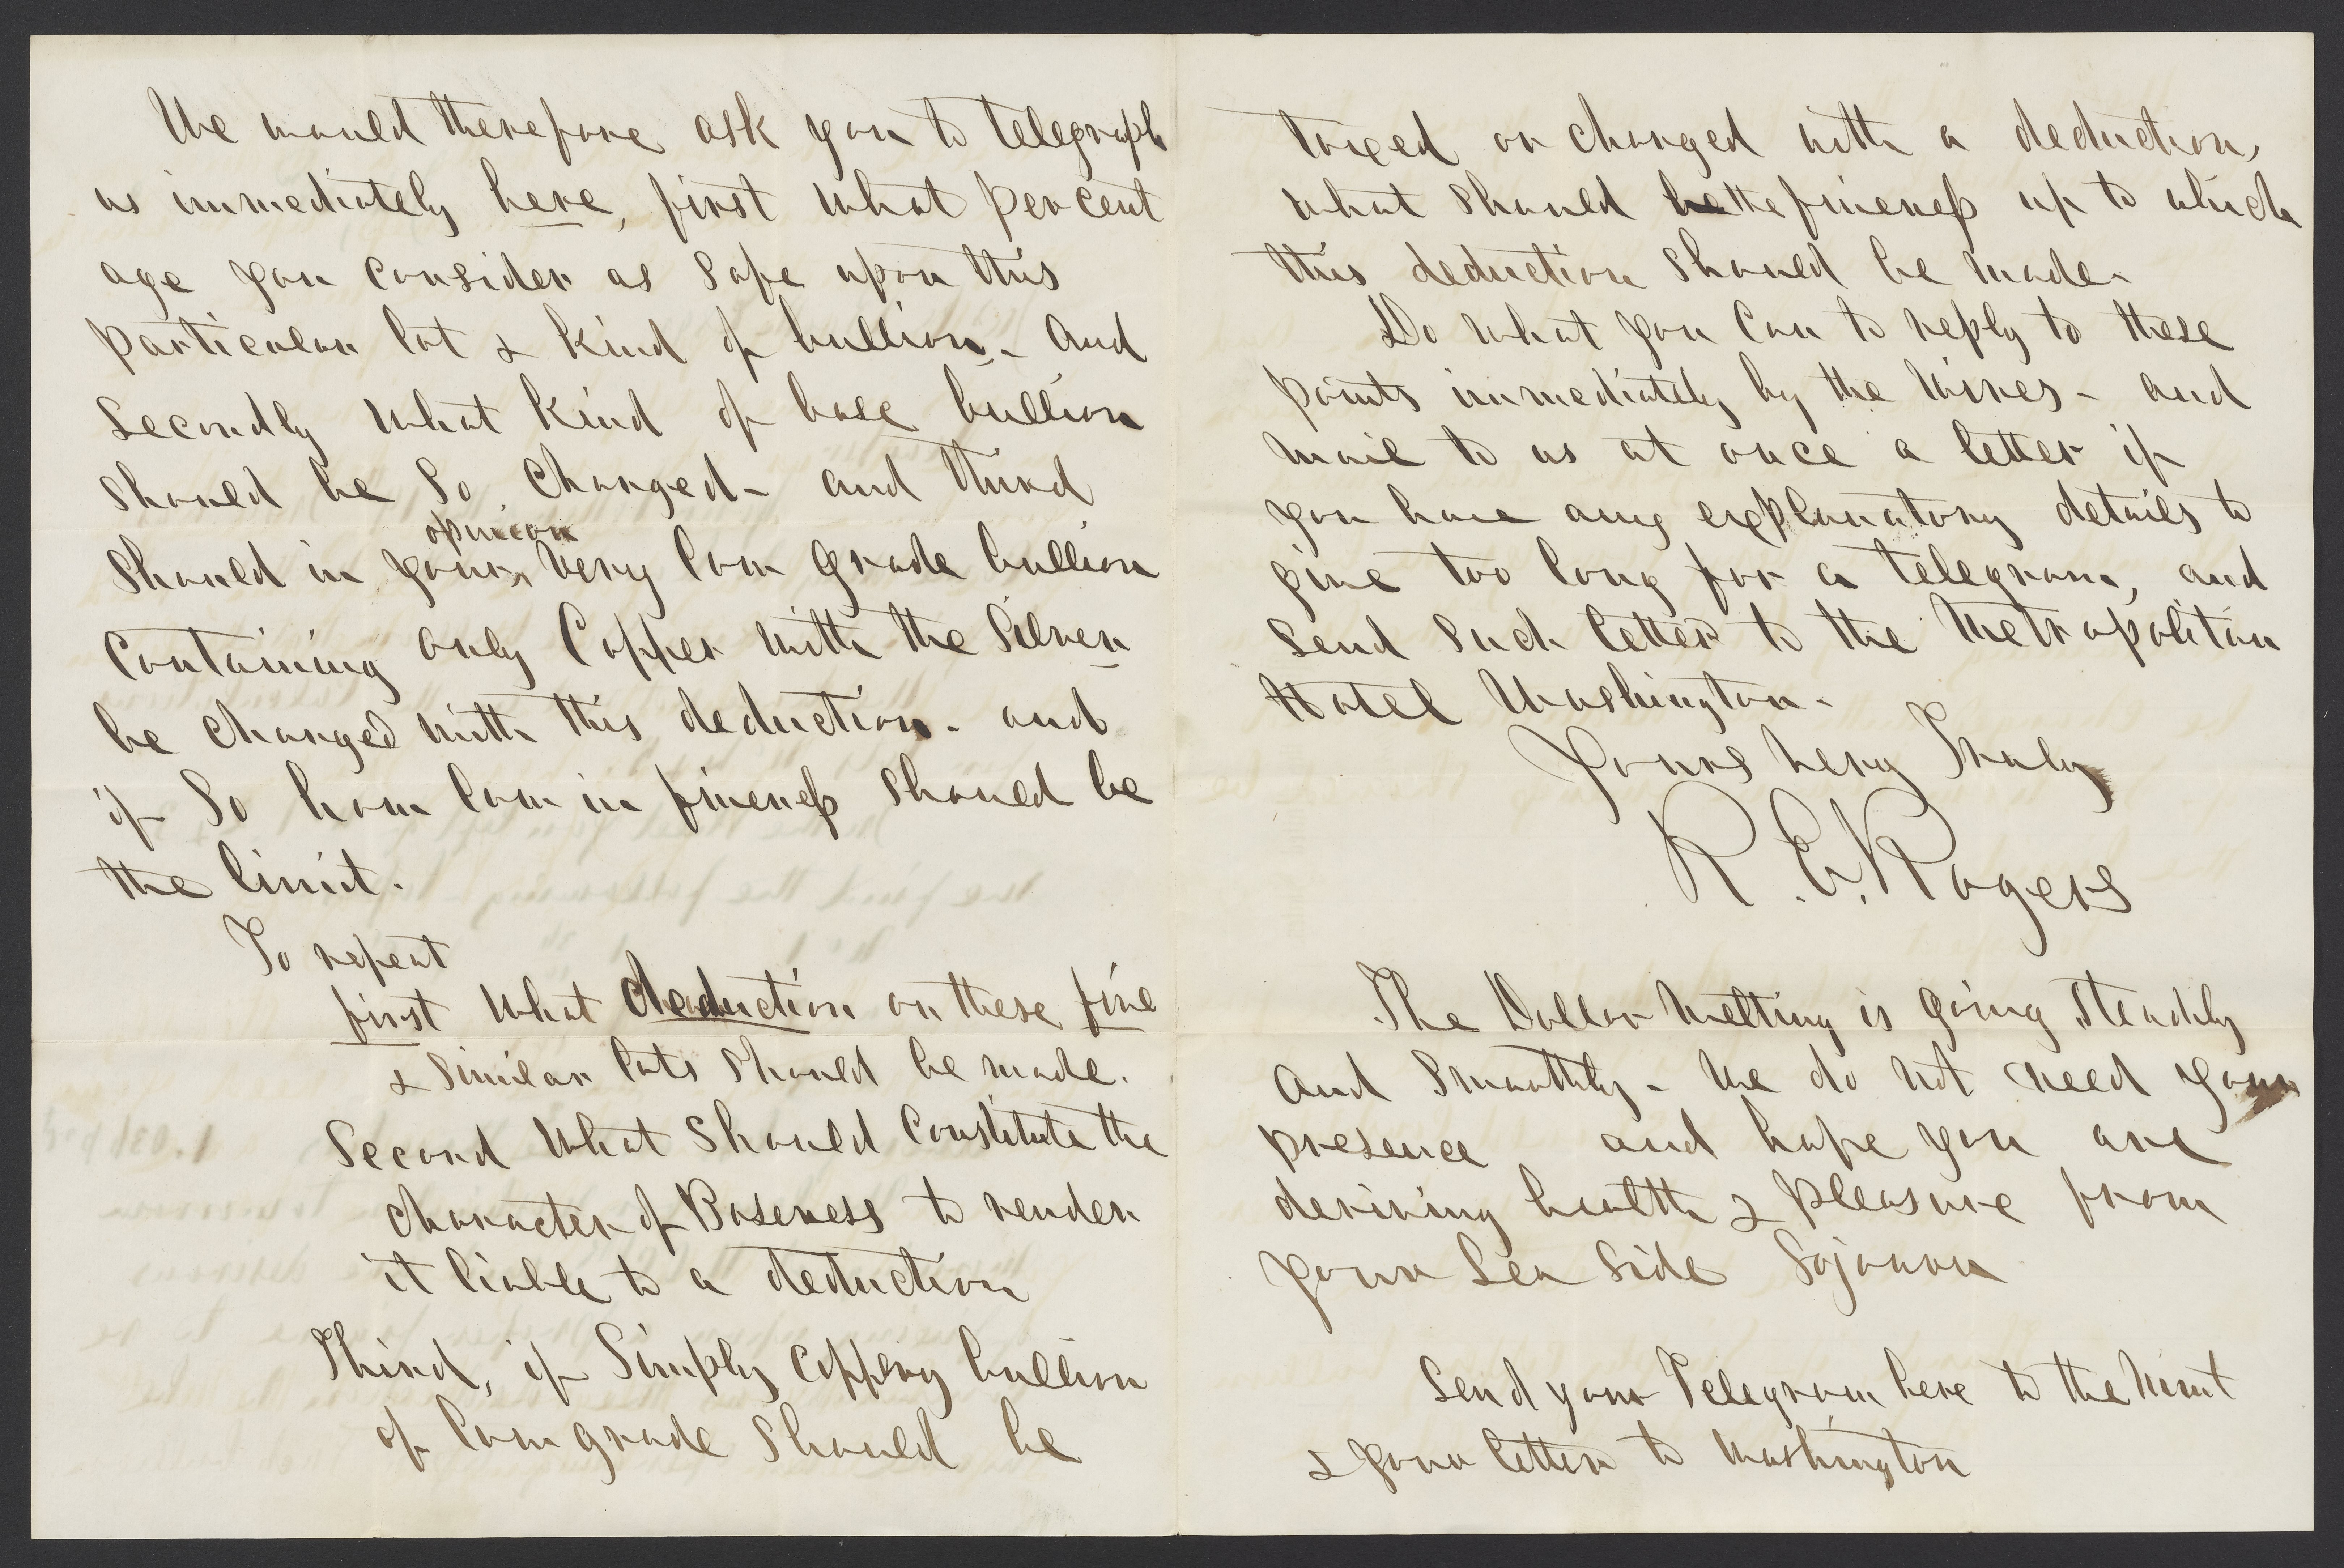 We would therefore ask you to telegraph
us immediately here, first what per cent
age you consider as safe upon this
particular lot & kind of bullion - And
secondly what kind of base bullion
should be so charged - and third
opinion
should in your very low grade bullion
containing only Copper with the Silver
be charged with this deduction - and
if so how low in fineness should be
the limit.
To repeat
first what deduction on these five
& similar lots should be made.
Second what should Constitute the
character of Baseness to render
it liable to a deduction
Third, if Simply coppery bullion
of low grade should be
taxed or charged with a deduction,
what should be the fineness up to which
this deduction should be made -
Do what you can to reply to these
points immediately by the wires - and
mail to us at once a letter if
you have any explanatory details to
give too long for a telegram, and
send such letter to the Metropolitan
Hotel Washington -
Yours very Truly
R. E. Rogers
The Dollar Melting is going steadily
and smoothly - We do not need your
presence and hope you are
deriving health & pleasure from
your Sea Side Sojourn
Send your Telegram here to the Mint
& your letter to Washington